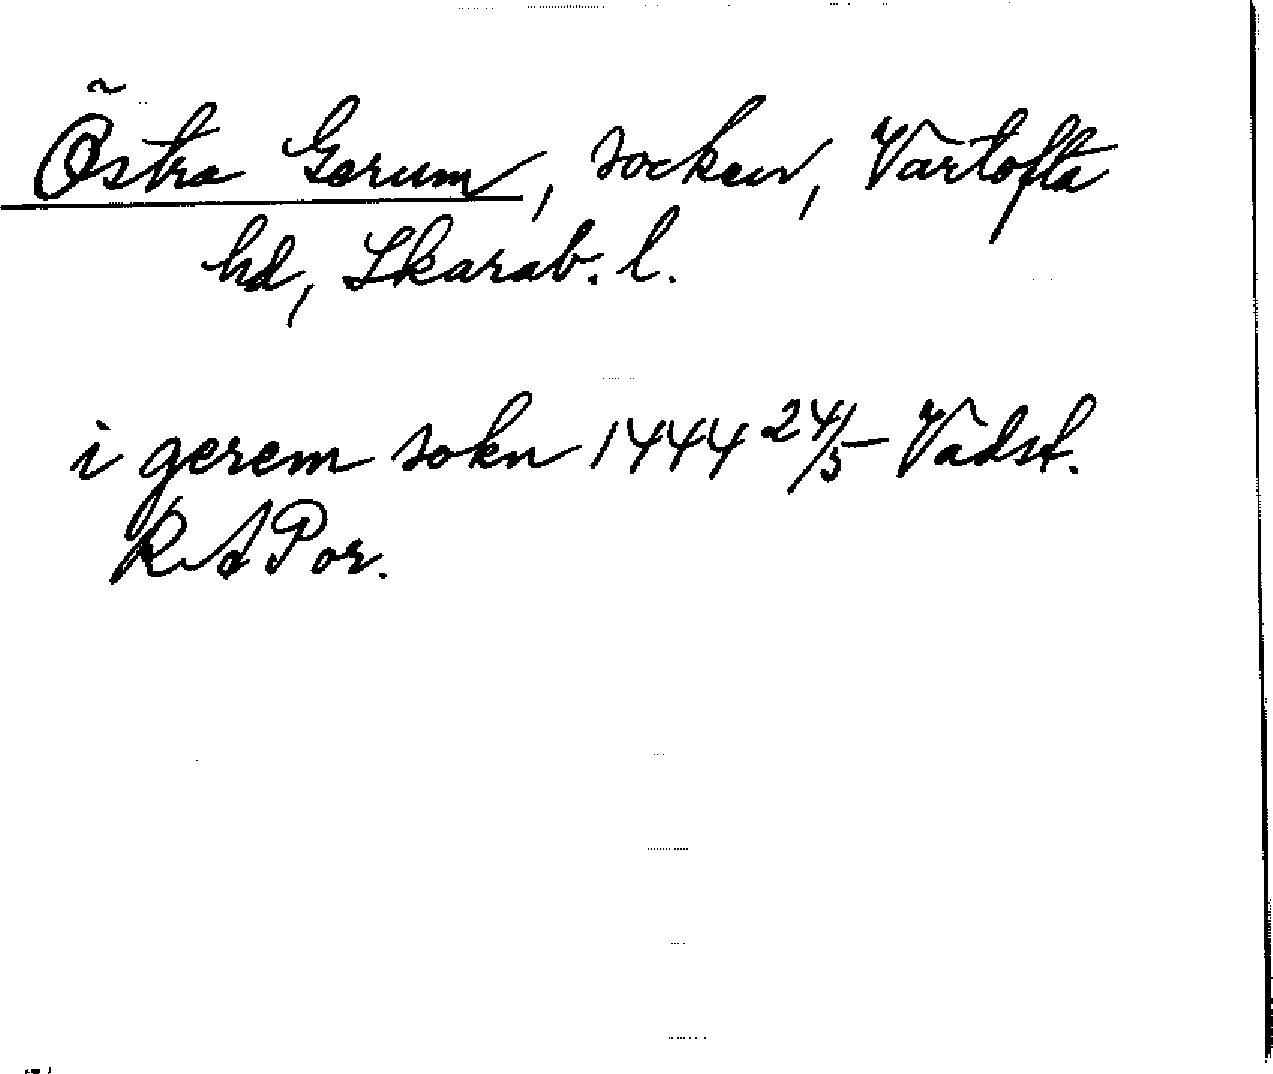 Östra Gerum, socken, Vartofta
hd, Skarab. l.
i gerem sokn 1444 24/5 Vadst.
RAPor.